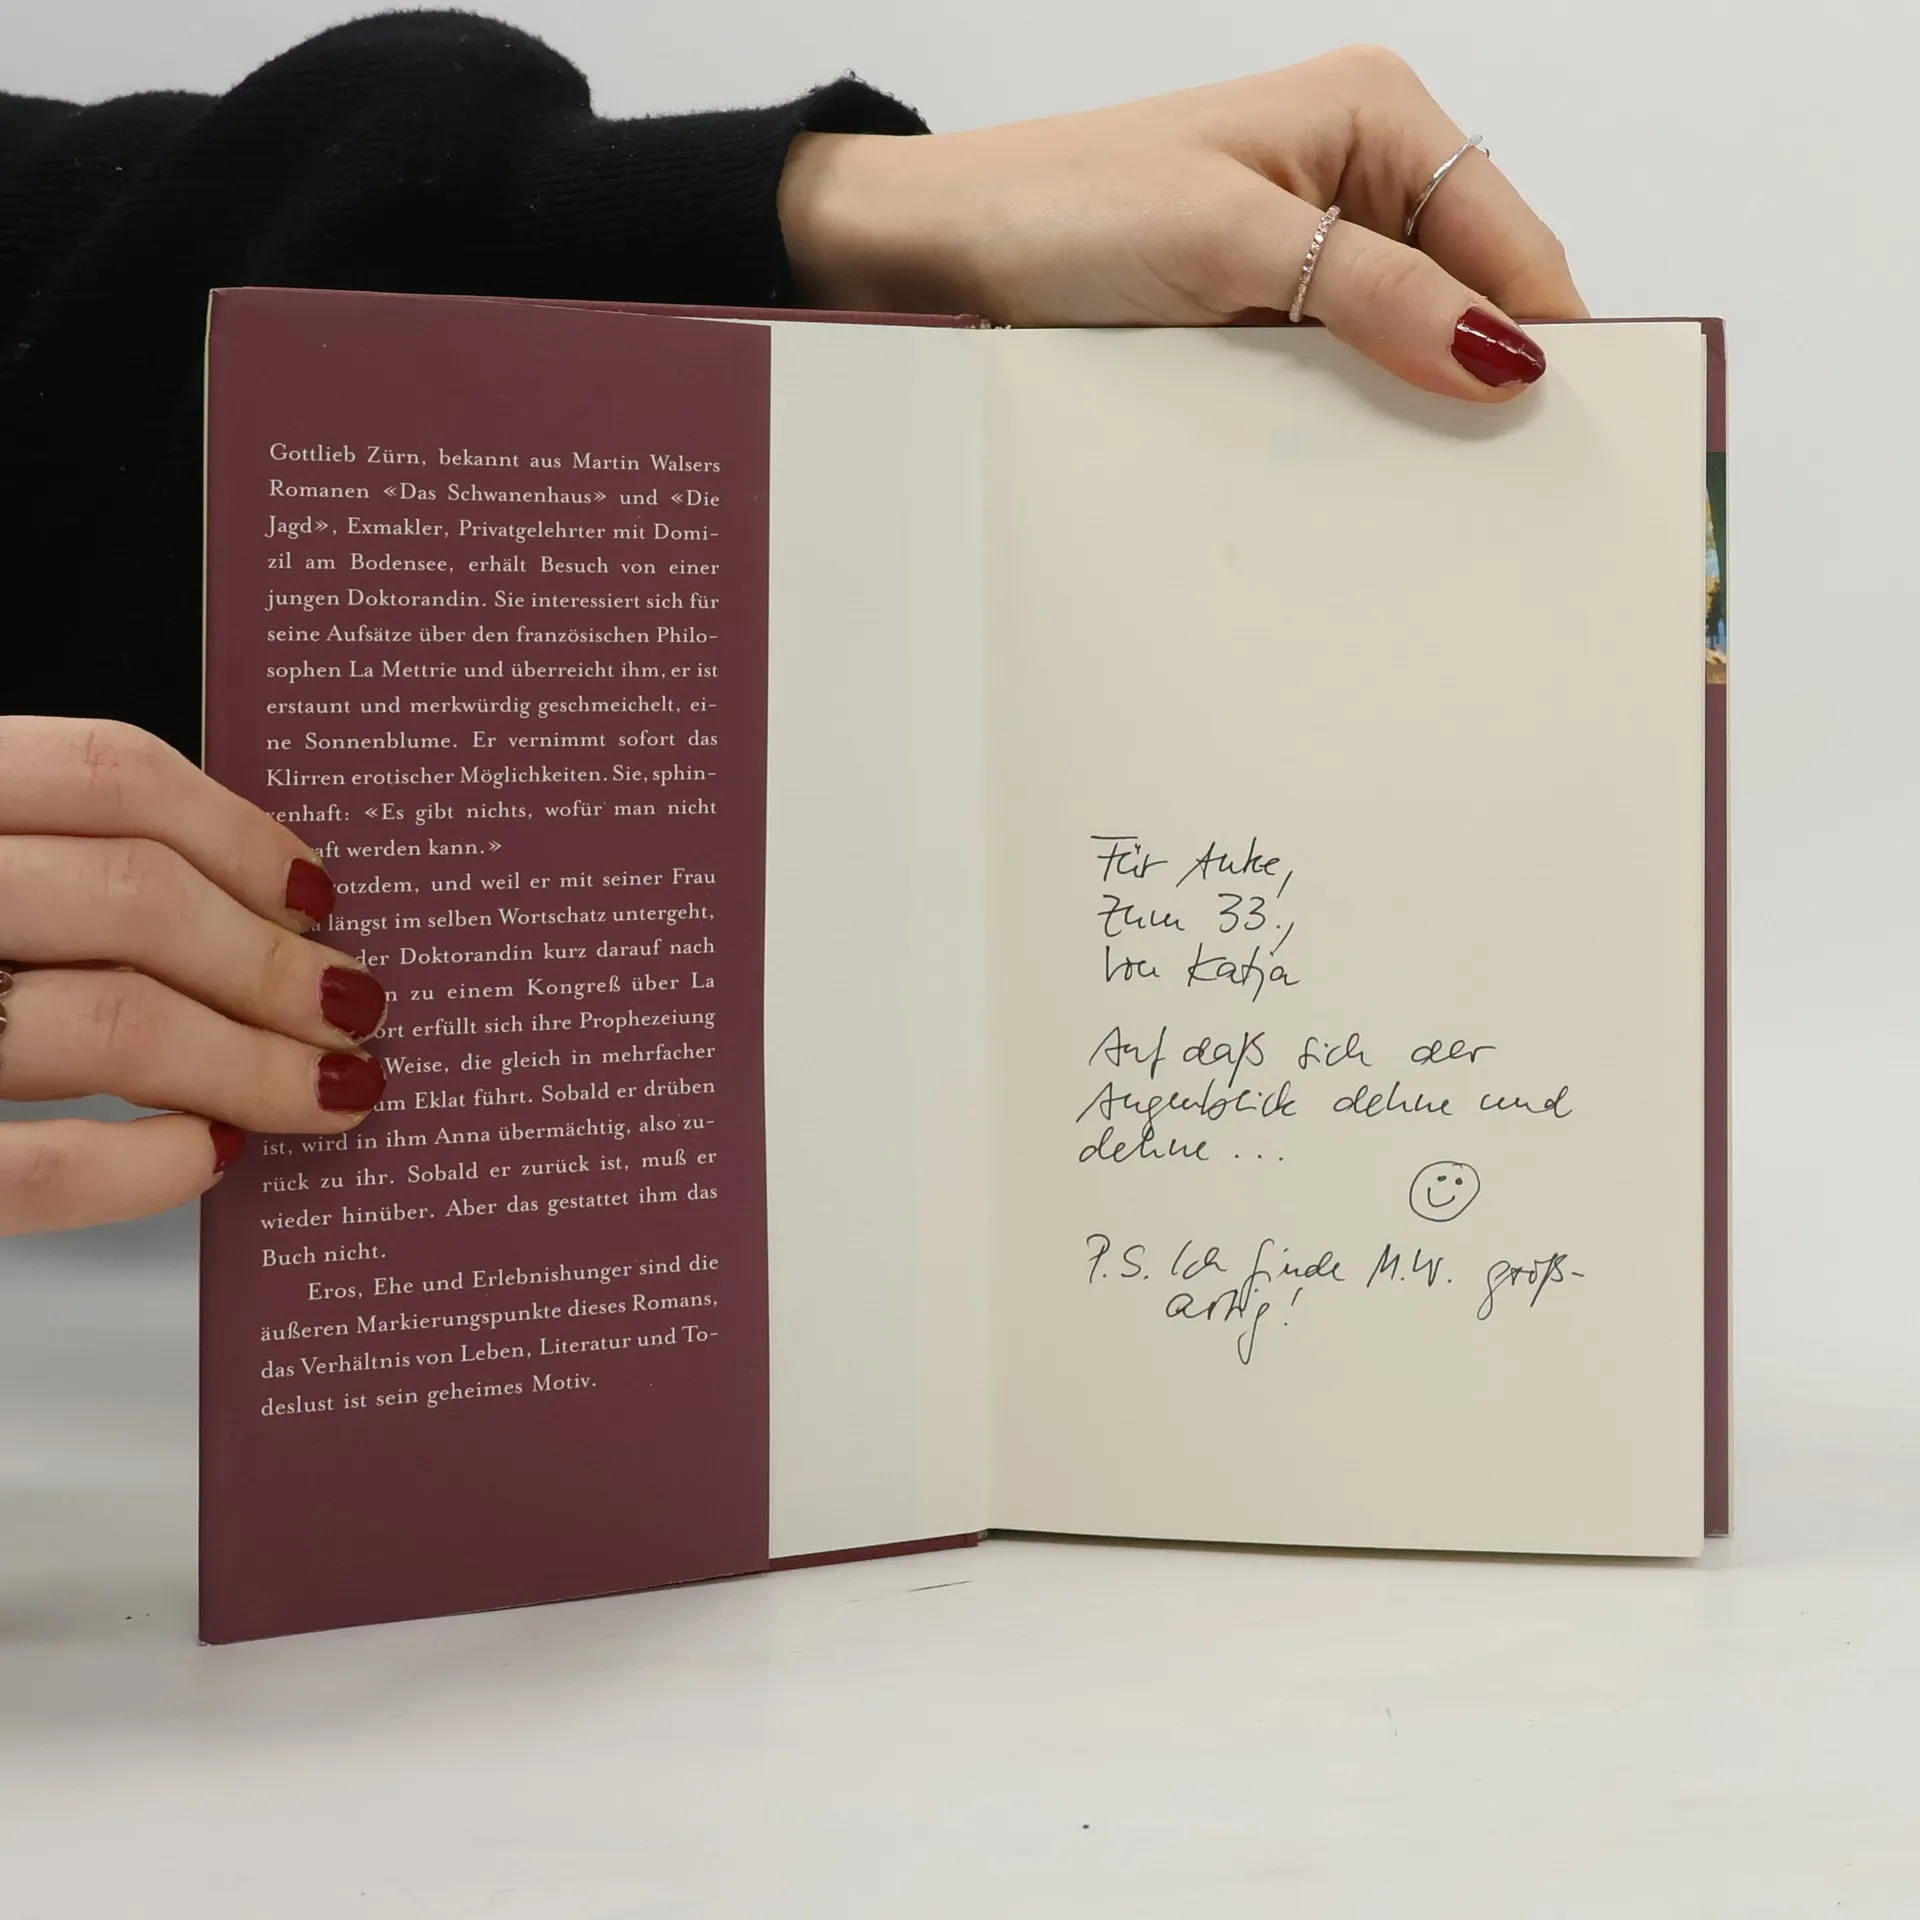 Gottlieb Zürn, bekannt aus Martin Walsers
Romanen «Das Schwanenhaus» und «Die
Jagd», Exmakler, Privatgelehrter mit Domi-
zil am Bodensee, erhält Besuch von einer
jungen Doktorandin. Sie interessiert sich für
seine Aufsätze über den französischen Philo-
sophen La Mettrie und überreicht ihm, er ist
erstaunt und merkwürdig geschmeichelt, ei-
ne Sonnenblume. Er vernimmt sofort das
Klirren erotischer Möglichkeiten. Sie, sphin-
xenhaft: «Es gibt nichts, wofür man nicht
werden kann.»
und weil er mit seiner Frau
längst im selben Wortschatz untergeht,
der Doktorandin kurz darauf nach
zu einem Kongreß über La
erfüllt sich ihre Prophezeiung
Weise, die gleich in mehrfacher
Eklat führt. Sobald er drüben
ist, wird in ihm Anna übermächtig, also zu-
rück zu ihr. Sobald er zurück ist, muß er
wieder hinüber. Aber das gestattet ihm das
Buch nicht.
Eros, Ehe und Erlebnishunger sind die
äußeren Markierungspunkte dieses Romans,
das Verhältnis von Leben, Literatur und To-
deslust ist sein geheimes Motiv.
Für Anke,
zum 33.,
von Katja
Auf daß sich der
Augenblick dehne und
dehne ...
P.S. Ich finde M.W. groß-
artig!